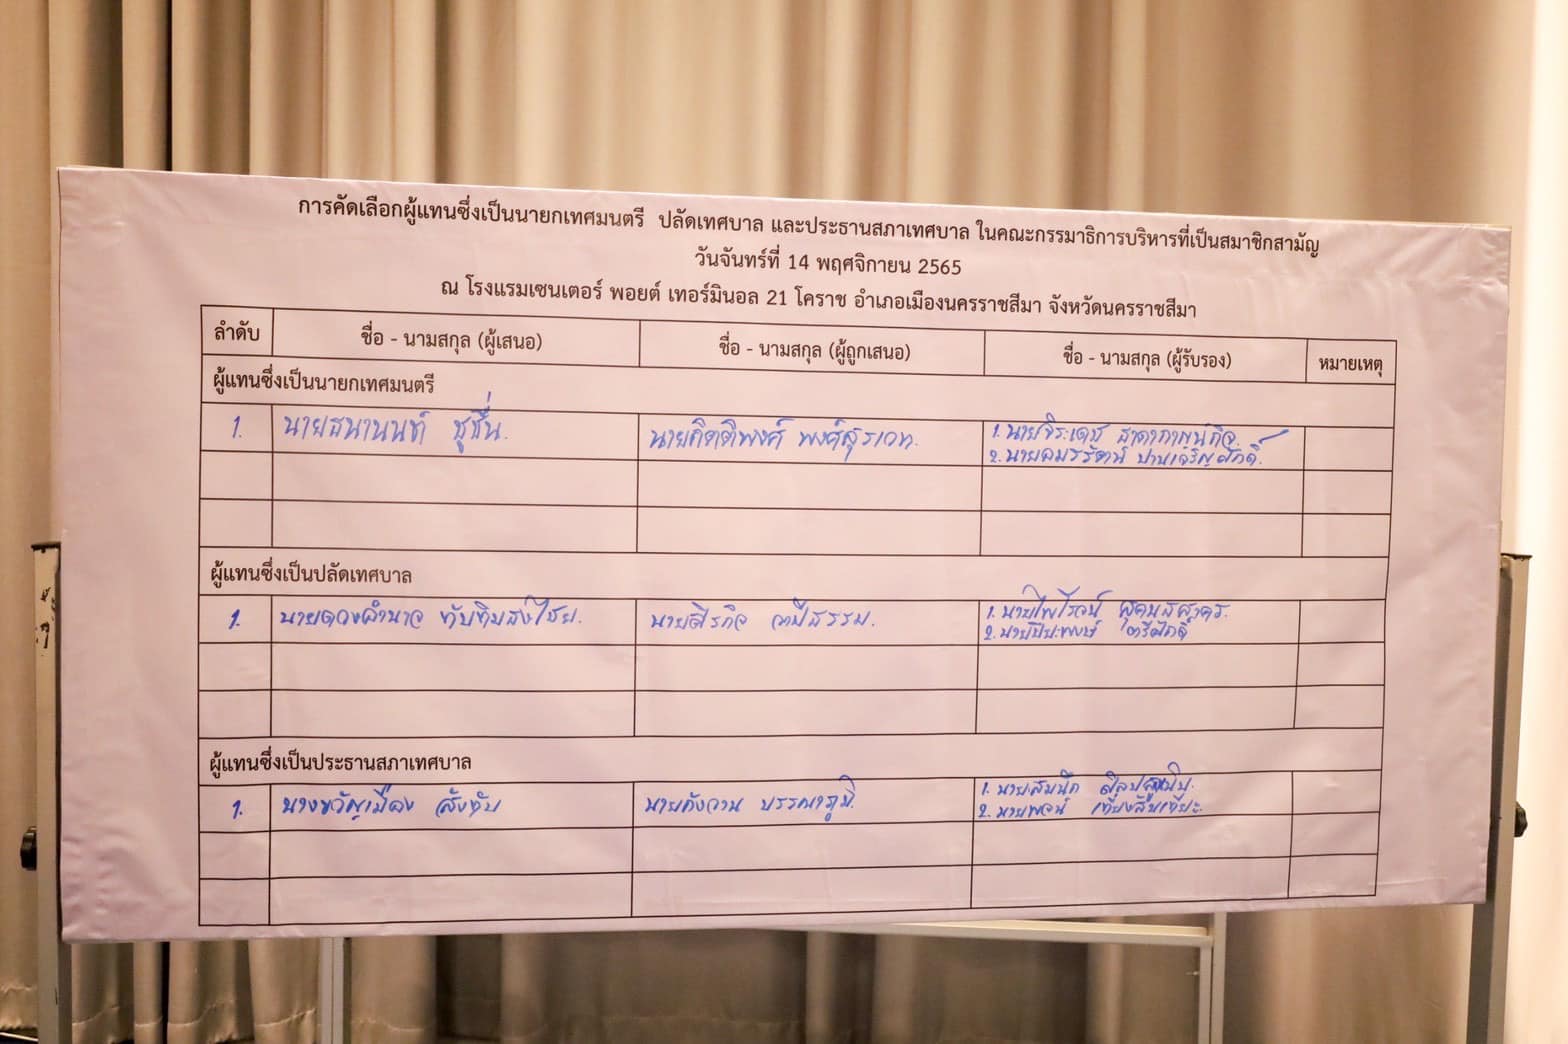 การคัดเลือกผู้แทนซึ่งเป็นนายกเทศมนตรี ปลัดเทศบาล และประธานสภาเทศบาล ในคณะกรรมาธิการบริหารที่เป็นสมาชิกสามัญ
วันจันทร์ที่ 14 พฤศจิกายน 2565
ณ โรงแรมเซนเตอร์ พอยต์ เทอร์มินอล 21 โคราช อำเภอเมืองนครราชสีมา จังหวัดนครราชสีมา
ลำดับ ชื่อ - นามสกุล (ผู้เสนอ) ชื่อ - นามสกุล (ผู้ถูกเสนอ) ชื่อ - นามสกุล (ผู้รับรอง) หมายเหตุ
ผู้แทนซึ่งเป็นนายกเทศมนตรี
1. นายธนานนท์ ชูชื่น. นายกิตติพงศ์ พงศ์สุรเวท. 1. นายจิระเดช
2. นายอมรรัตน์ ปานเจริญศักดิ์.
ผู้แทนซึ่งเป็นปลัดเทศบาล
1. นายดวงอำนาจ ทับทิมส่งไชย. นายศิรกิจ 1. นายไพโรจน์
2. นายปิยะพงษ์ ตรีศักดิ์
ผู้แทนซึ่งเป็นประธานสภาเทศบาล
1. นางขวัญเมือง สั่งทับ นายกังวาน บรรณาภูมิ. 1. นายสมนึก
2. นายพจน์